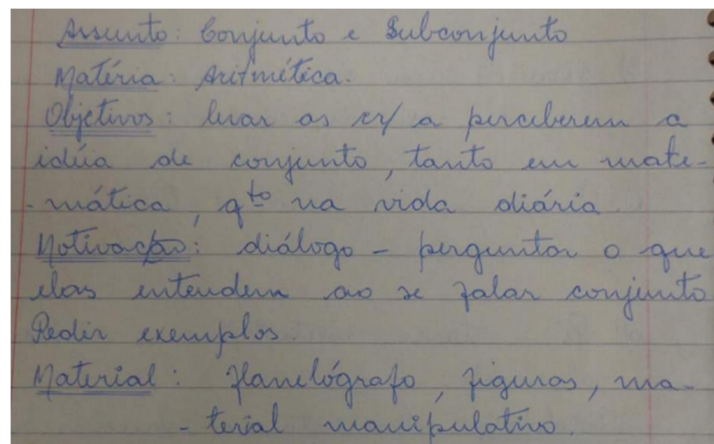 Assunto: Conjunto e Subconjunto
Matéria: Aritmética.
Objetivos: levar as cr/ a perceberem a
idéia de conjunto, tanto em mate-
-mática, qto na vida diária.
Motivação: diálogo - perguntar o que
elas entendem ao se falar conjunto
Pedir exemplos.
Material: flanelógrafo, figuras, ma-
-terial manipulativo.